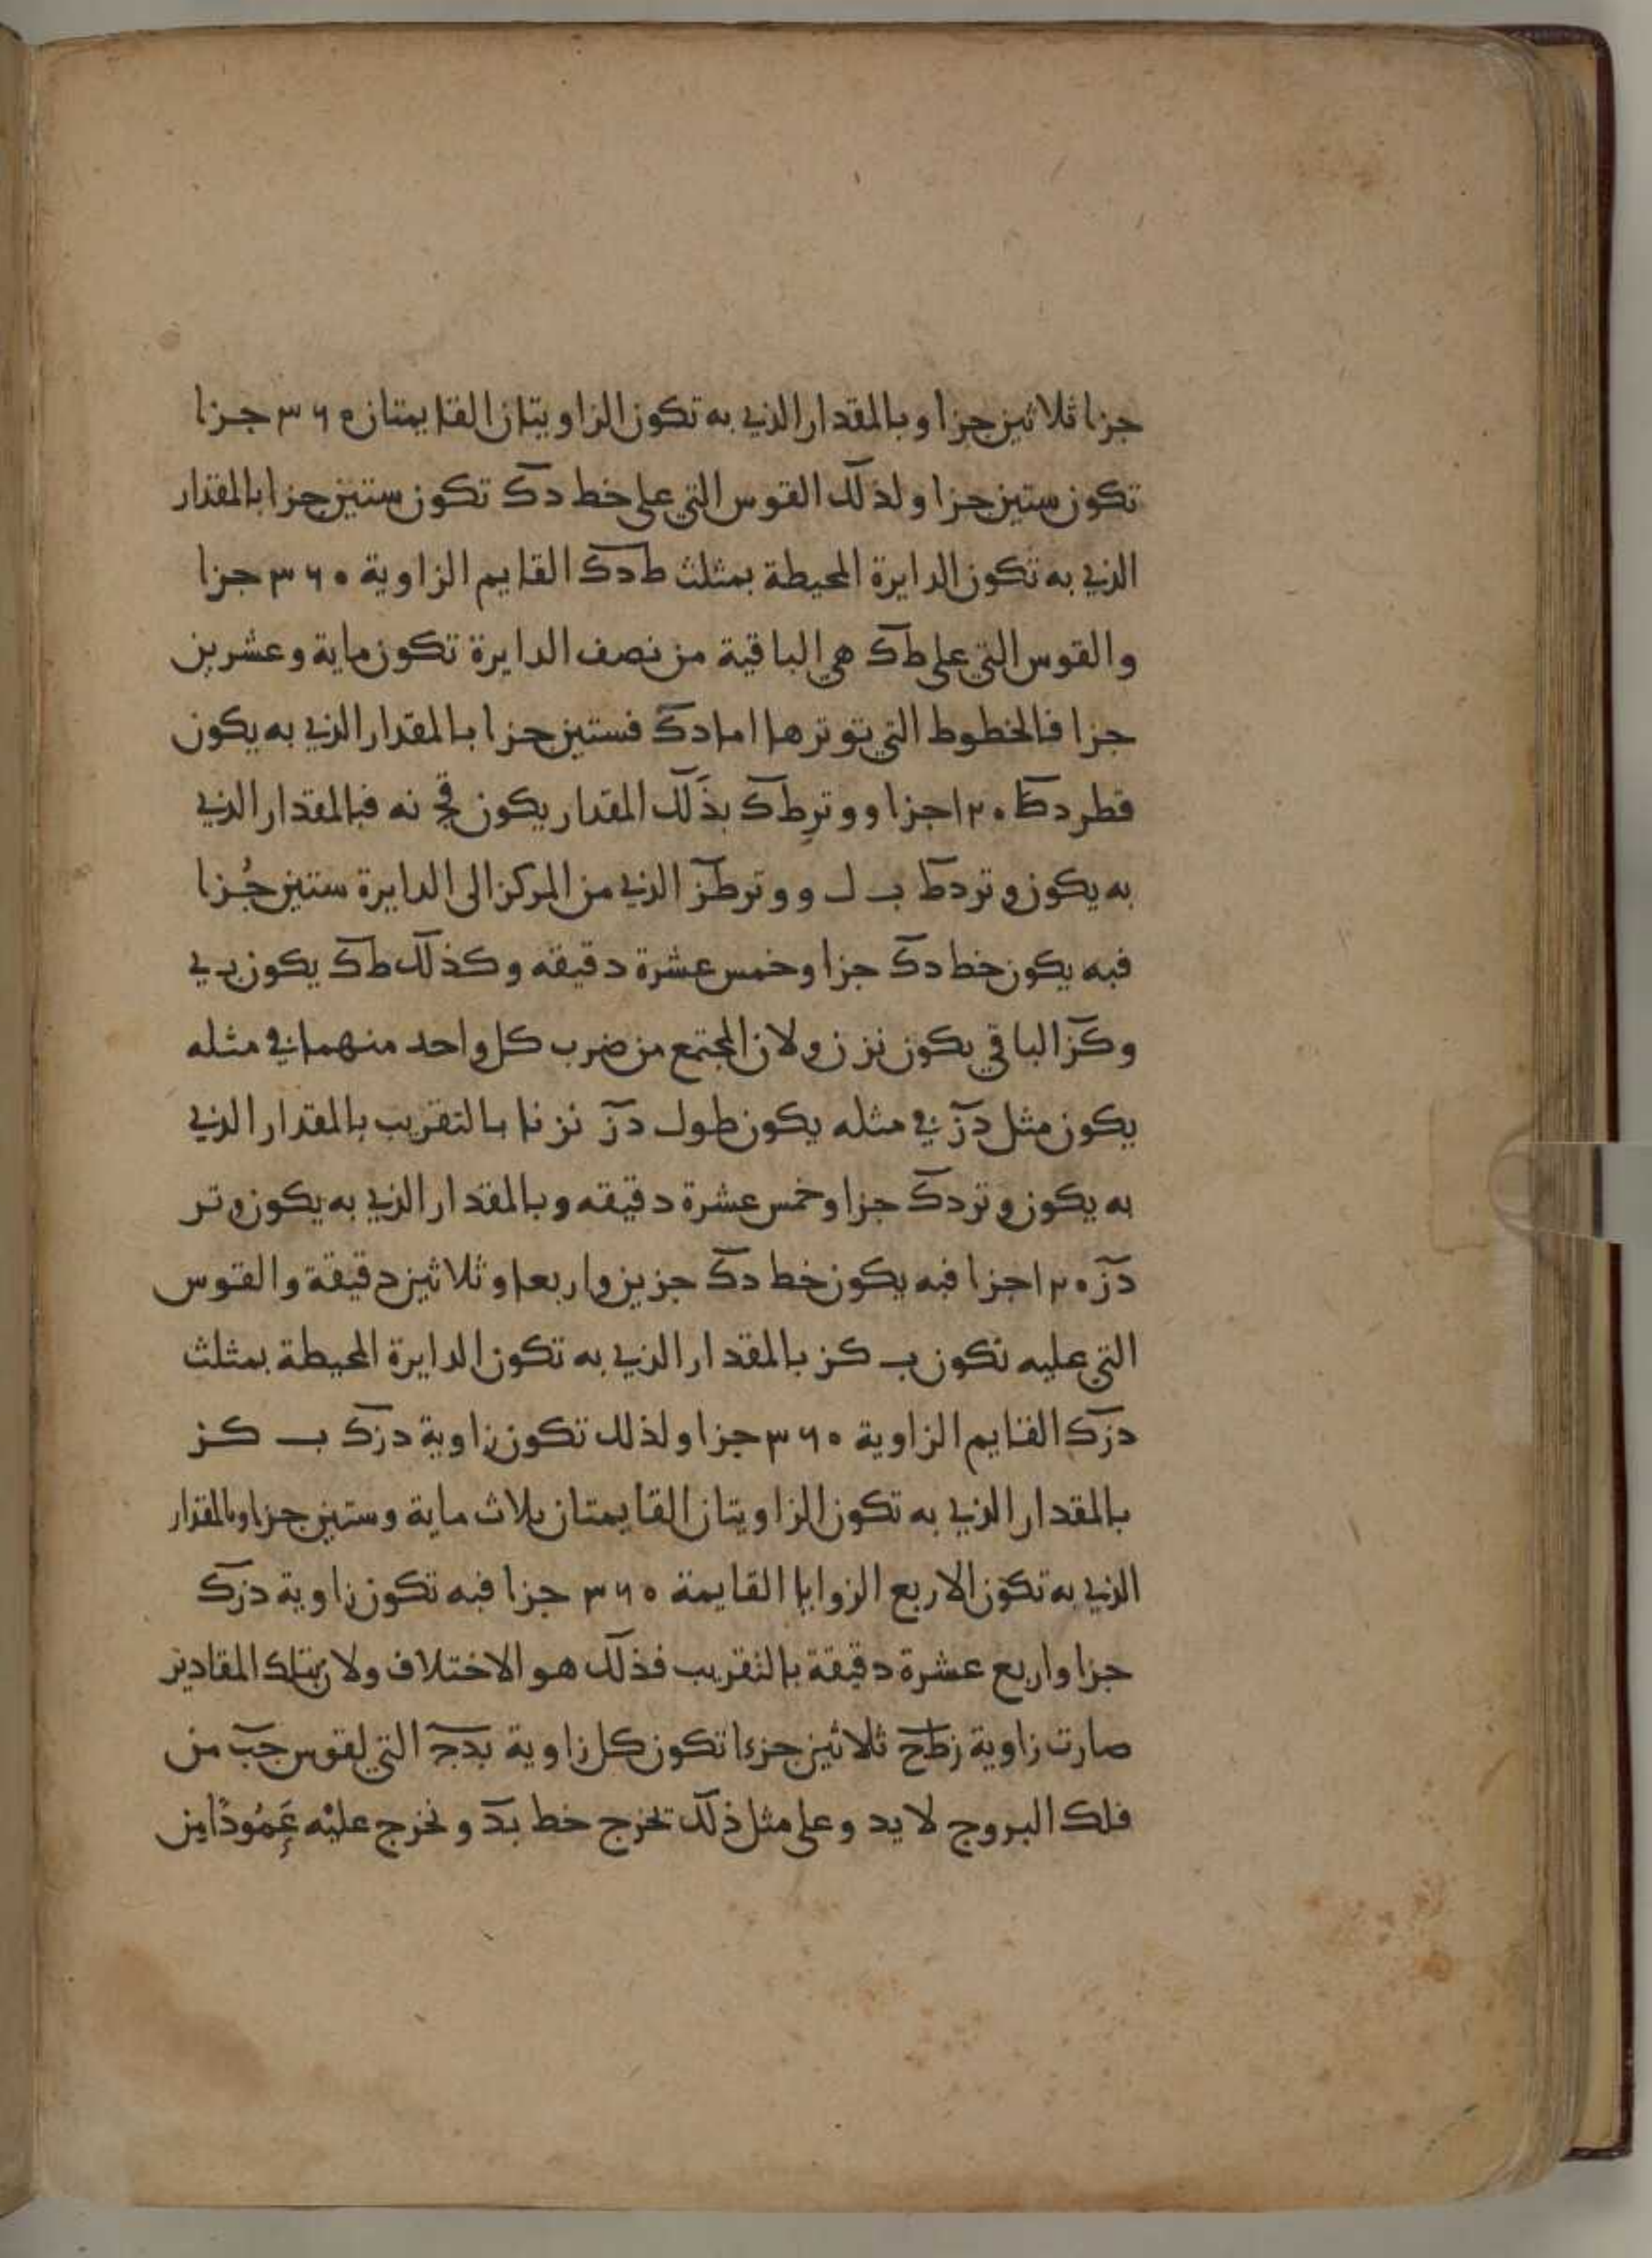 جزا ثلاثين جزا وبالمقدار الذي به تكون الزاويتان القايمتان ٣٦٠ جزا
تكون ستين جزا ولذلك القوس التي على خط دك تكون ستين جزا بالمقدار
الذي به تكون الدايرة المحيطة بمثلث طدك القايم الزاوية ٣٦٠ جزا
والقوس التي على طك هي الباقية من نصف الدايرة تكون ماية وعشرين
جزا فالخطوط التي توترها اما دك فستين جزا بالمقدار الذي به يكون
قطر دط ١٢٠ جزا ووتر طك بذلك المقدار يكون قج نه فبالمقدار الذي
به يكون وتر دط ب ل ووتر طز الذي من المركز الى الدايرة ستين جُزا
فبه يكون خط دك جزا وخمس عشرة دقيقه وكذلك طك يكون ب ي
وكز الباقي يكون نز ن ولان المجتمع من ضرب كل واحد منهما في مثله
يكون مثل دز في مثله يكون طول دز نز نا بالتقريب بالمقدار الذي
به يكون وتر دك جزا وخمس عشرة دقيقه وبالمقدار الذي به يكون وتر
دز ١٢٠ جزا فبه يكون خط دك جزين واربعا وثلاثين دقيقة والقوس
التي عليه تكون ب كز بالمقدار الذي به تكون الدايرة المحيطة بمثلث
دزك القايم الزاوية ٣٦٠ جزا ولذلك تكون زاوية دزك ب كز
بالمقدار الذي به تكون الزاويتان القايمتان ثلاث ماية وستين جزا وبالمقدار
الذي به تكون الاربع الزوايا القايمة ٣٦٠ جزا فبه تكون زاوية دزك
جزا واربع عشرة دقيقة بالتقريب فذلك هو الاختلاف ولان بتلك المقادير
صارت زاوية زطح ثلاثين جزءا تكون كل زاوية بدج التي لقوس جب من
فلك البروج لا يد وعلى مثل ذلك نخرج خط بد ونخرج عليْه عَمُودًا من